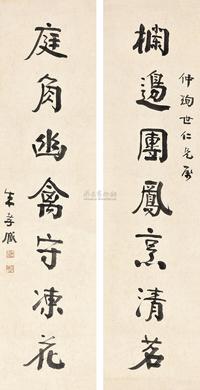 仲珣世仁兄屬
欄邊團鳳烹清茗
庭角幽禽守凍花
朱孝臧